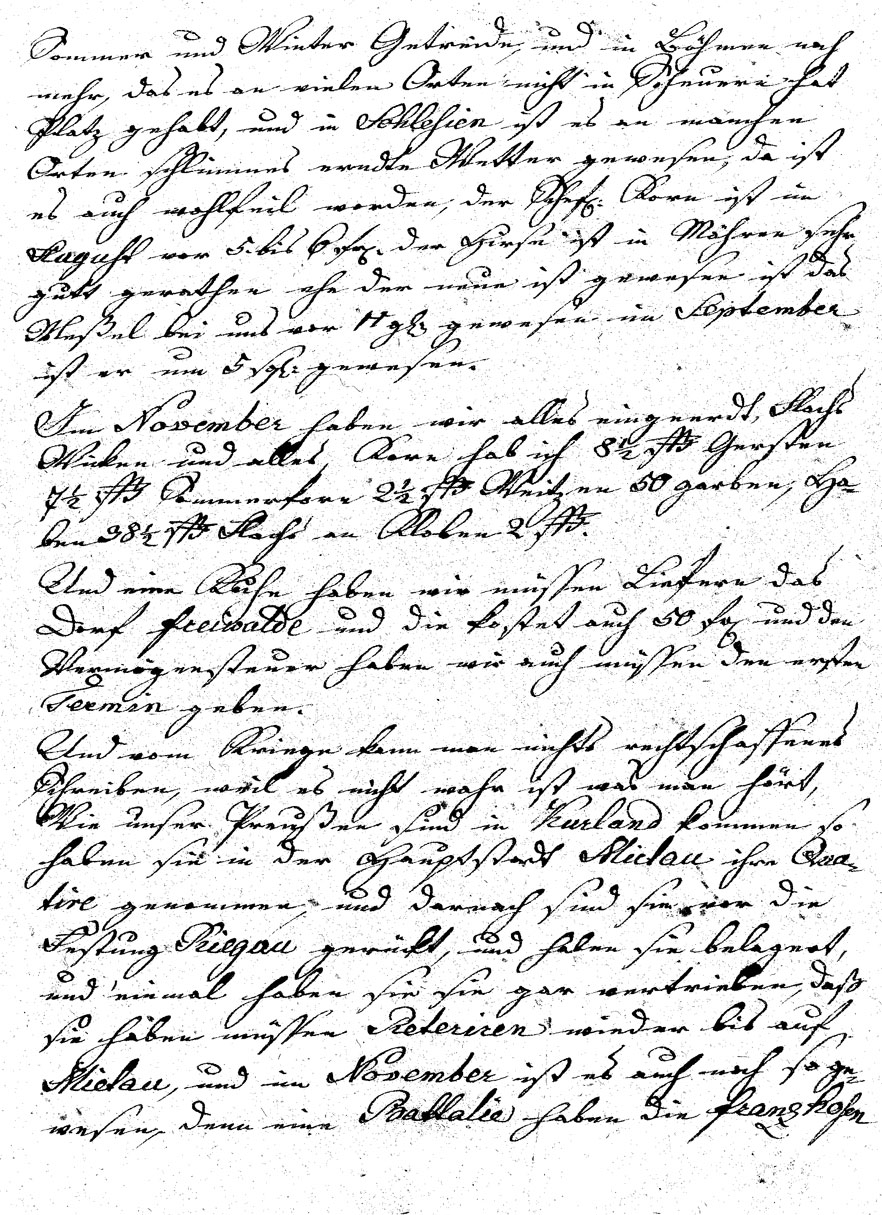 Sommer und Winter Getreide, und in Böhmen noch
mehr, das es an vielen Orten nicht in Scheuern hat
Platz gehabt, und in Schlesien ist es an manchen
Orten schlimmes erndte Wetter gewesen, da ist
es auch wohlfeil worden, der Schef. Korn ist im
August vor 5. bis 6 der Hirse ist in Mähren sehr
gutt gerathen ehe der neue ist gewesen ist das
Meßel bei uns vor 11 gewesen im September
ist er um 5 sgl: gewesen.
Im November haben wir alles eingeerdt, Flachs
Wicken und alles, Korn hab ich 8½ Gersten
7½ Sommerkorn 2½ Weitzen 50 garben, Ha-
ben 38½ Flachs an Kloben 2
Und eine Kuhe haben wir müssen Liefern das
Dorf freiwalde und die kostet auch 50 und den
Vermögensteuer haben wir auch müssen den ersten
Termin geben.
Und vom Kriege kann man nichts rechtschaffenes
Schreiben, weil es nicht wahr ist was man hört,
Wie unser Preußen sind in Kurland kommen so
haben sie in der Hauptstadt Mietau ihre Qua-
tire genommen, und darnach sind sie vor die
Festung Riegau gerückt, und haben sie belagert,
und einmal haben sie sie gar vertrieben, daß
sie haben müssen Reteriren wieder bis auf
Mietau, und im November ist es auch noch so ge-
wesen, denn eine Battalie haben die franzhosen